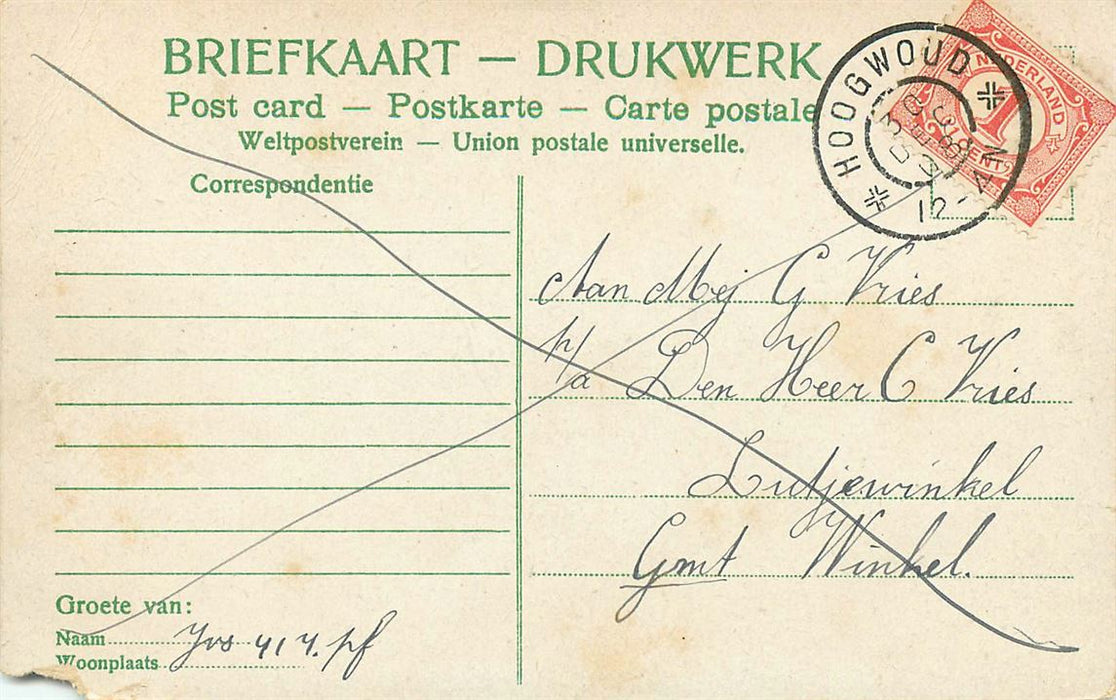 BRIEFKAART — DRUKWERK
Post card — Postkarte — Carte postale
Weltpostverein — Union postale universelle.
Correspondentie
HOOGWOUD
12-4N
NEDERLAND
1
CENT
Aan Mej G Vries
p/a Den Heer C Vries
Lutjewinkel
Gmt Winkel.
Groete van:
Naam
Woonplaats